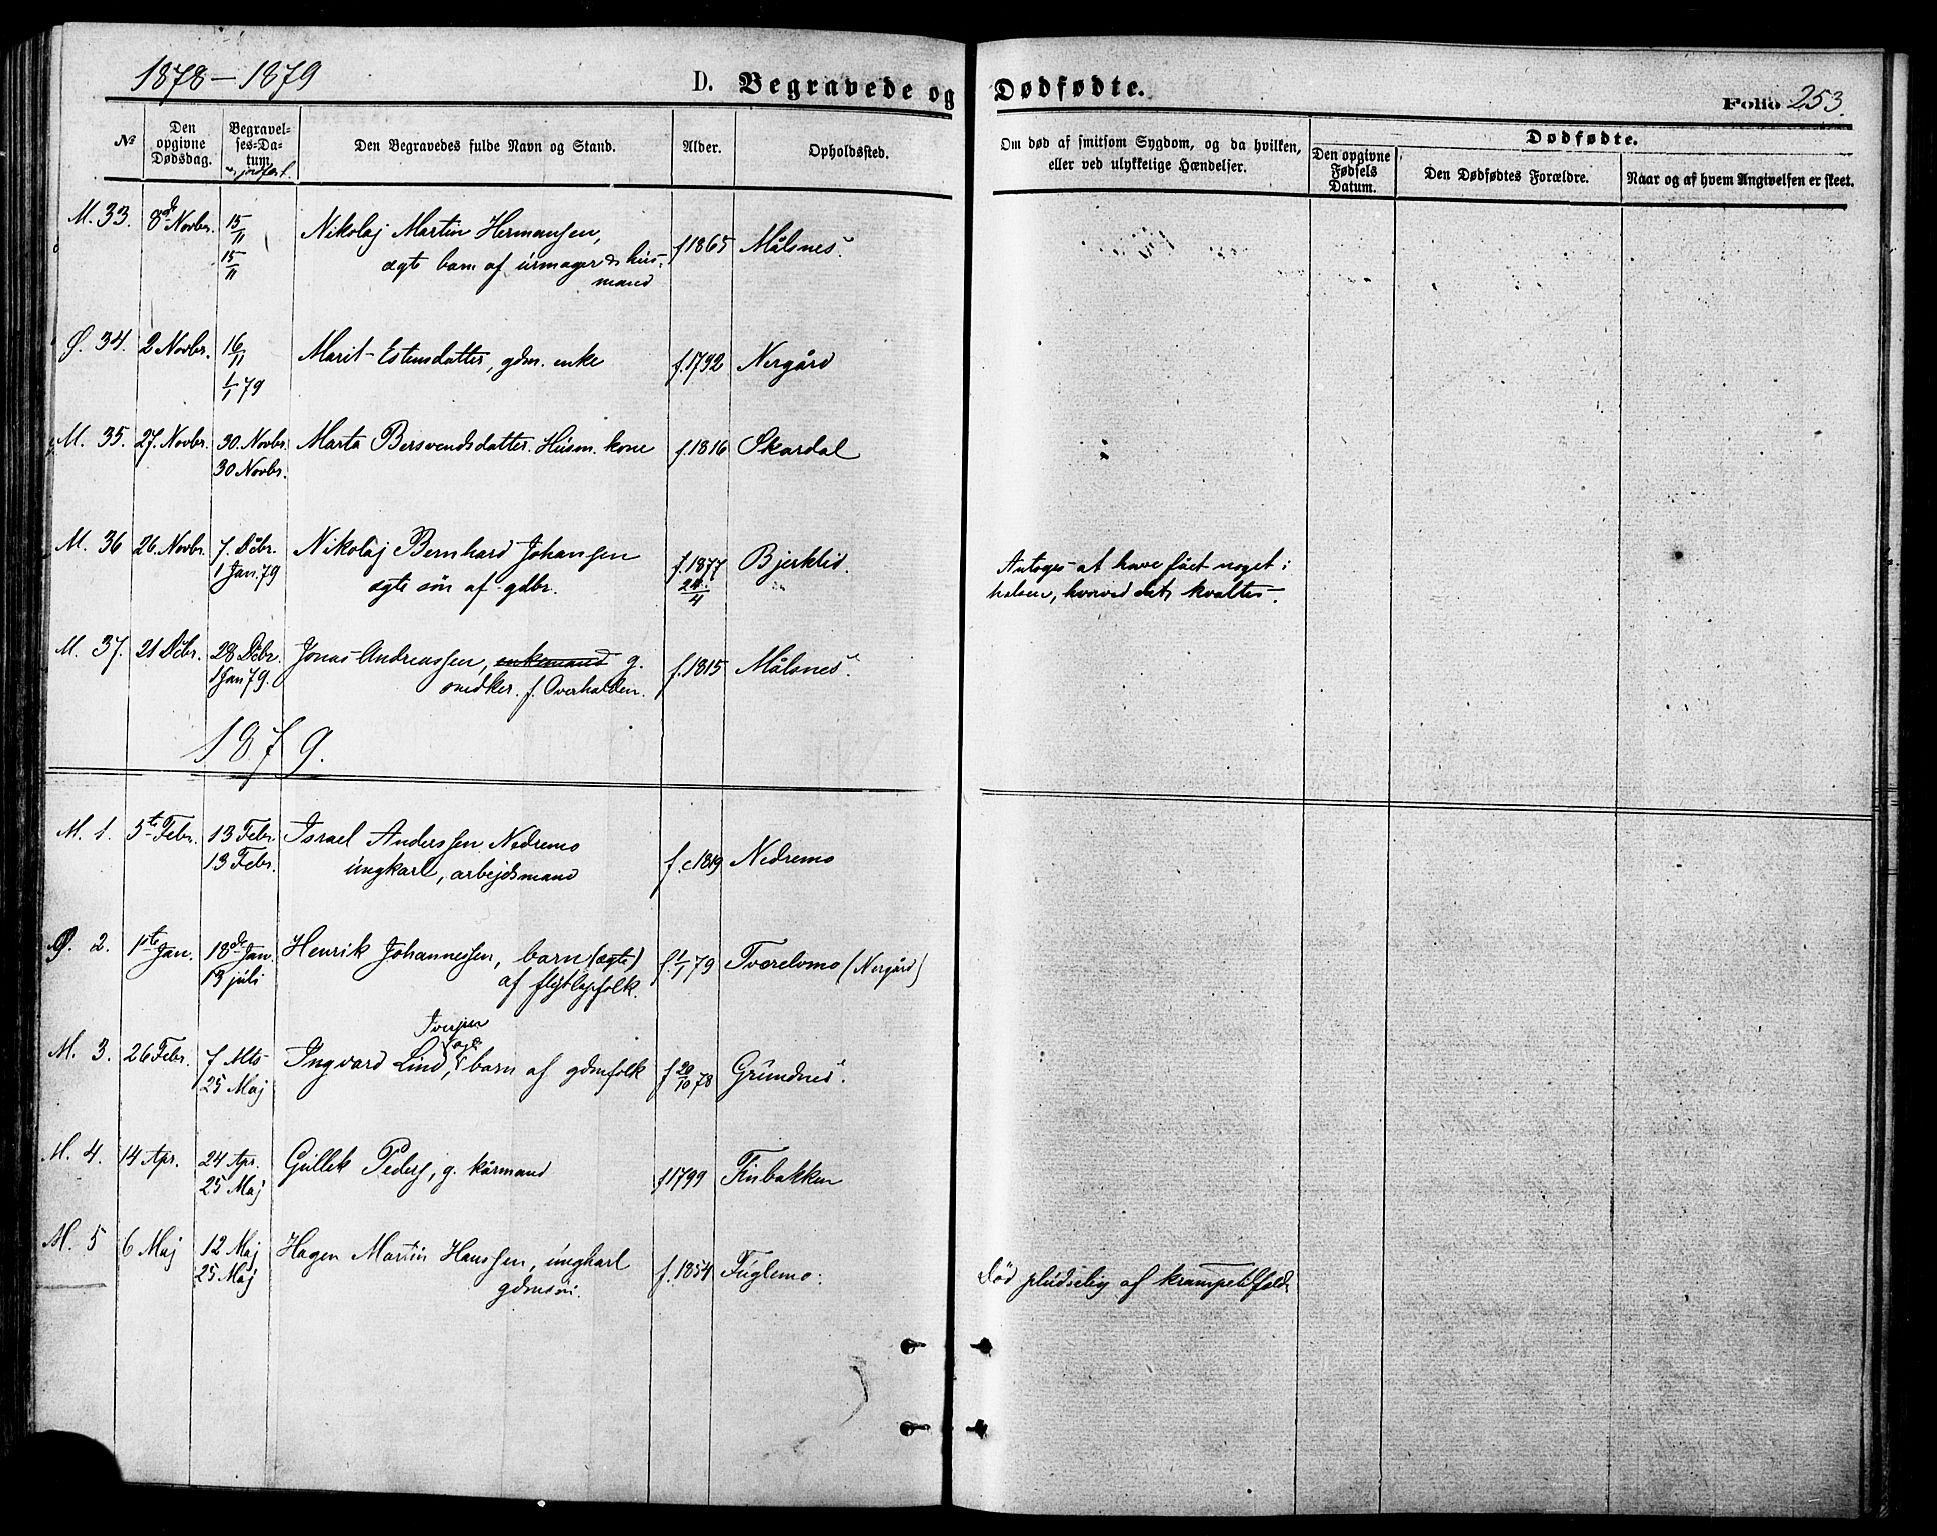 1878 – 1879
D. Begravede og Dødfødte.
Folio 253.
№
Den opgivne Dødsdag.
Begravelses-Datum.
jordfæst.
Den Begravedes fulde Navn og Stand.
Alder.
Opholdssted.
Om død af smitsom Sygdom, og da hvilken, eller ved ulykkelige Hændelser.
Dødfødte.
Den opgivne Fødsels Datum.
Den Dødfødtes Forældre.
Naar og af hvem Angivelsen er skeet.
M. 33. 8de Novbr. 15/11 Nikolaj Martin Hermansen, f. 1865 Målsnes.
15/11 ægte barn af urmager & hus-
mand
Ø. 34. 2 Novbr. 16/11 Marit Estensdatter, gdm. enke f. 1792 Nergård
1/1 79
M. 35. 27. Novbr. 30 Novbr. Marta Bersvendsdatter. Husm. kone f. 1816 Skardal
30 Novbr.
M. 36 26 Novbr. 7. Dcbr. Nikolaj Bernhard Johansen f. 1877 Bjerklid. Antoges at have fået noget i
1 Jan. 79 ægte søn af gdbr. 24/4 halsen, hvorved det kvaltes.
M. 37. 21 Dcbr. 28 Dcbr. Jonas Andreassen, enkemand g. f. 1815 Målsnes.
1 Jan 79. snedker. f. Overhalden.
1879.
M. 1. 5te Febr. 13 Febr. Israel Anderssen Nedremo f. c. 1819 Nedremo
13 Febr. ungkarl, arbejdsmand
Ø. 2. 1ste Jan. 18de Jan. Henrik Johannessen, barn (ægte) f. 1/1 79 Tverelvmo (Nergård)
13 juli af flytlapfolk.
Iversen
ægte
M. 3. 26 Febr. 7 Mts Ingvard Lind, barn af gdmfolk f. 20/10 78 Grundnes.
25 Maj
M. 4. 14 Apr. 24 Apr. Gullek Peders, g. kårmand f 1799 Finbakken
25 Maj
M. 5 6 Maj 12 Maj Hagen Martin Hanssen, ungkarl f. 1854 Fuglemo. Død pludselig af krampetilfælde
25 Maj gdmsøn.